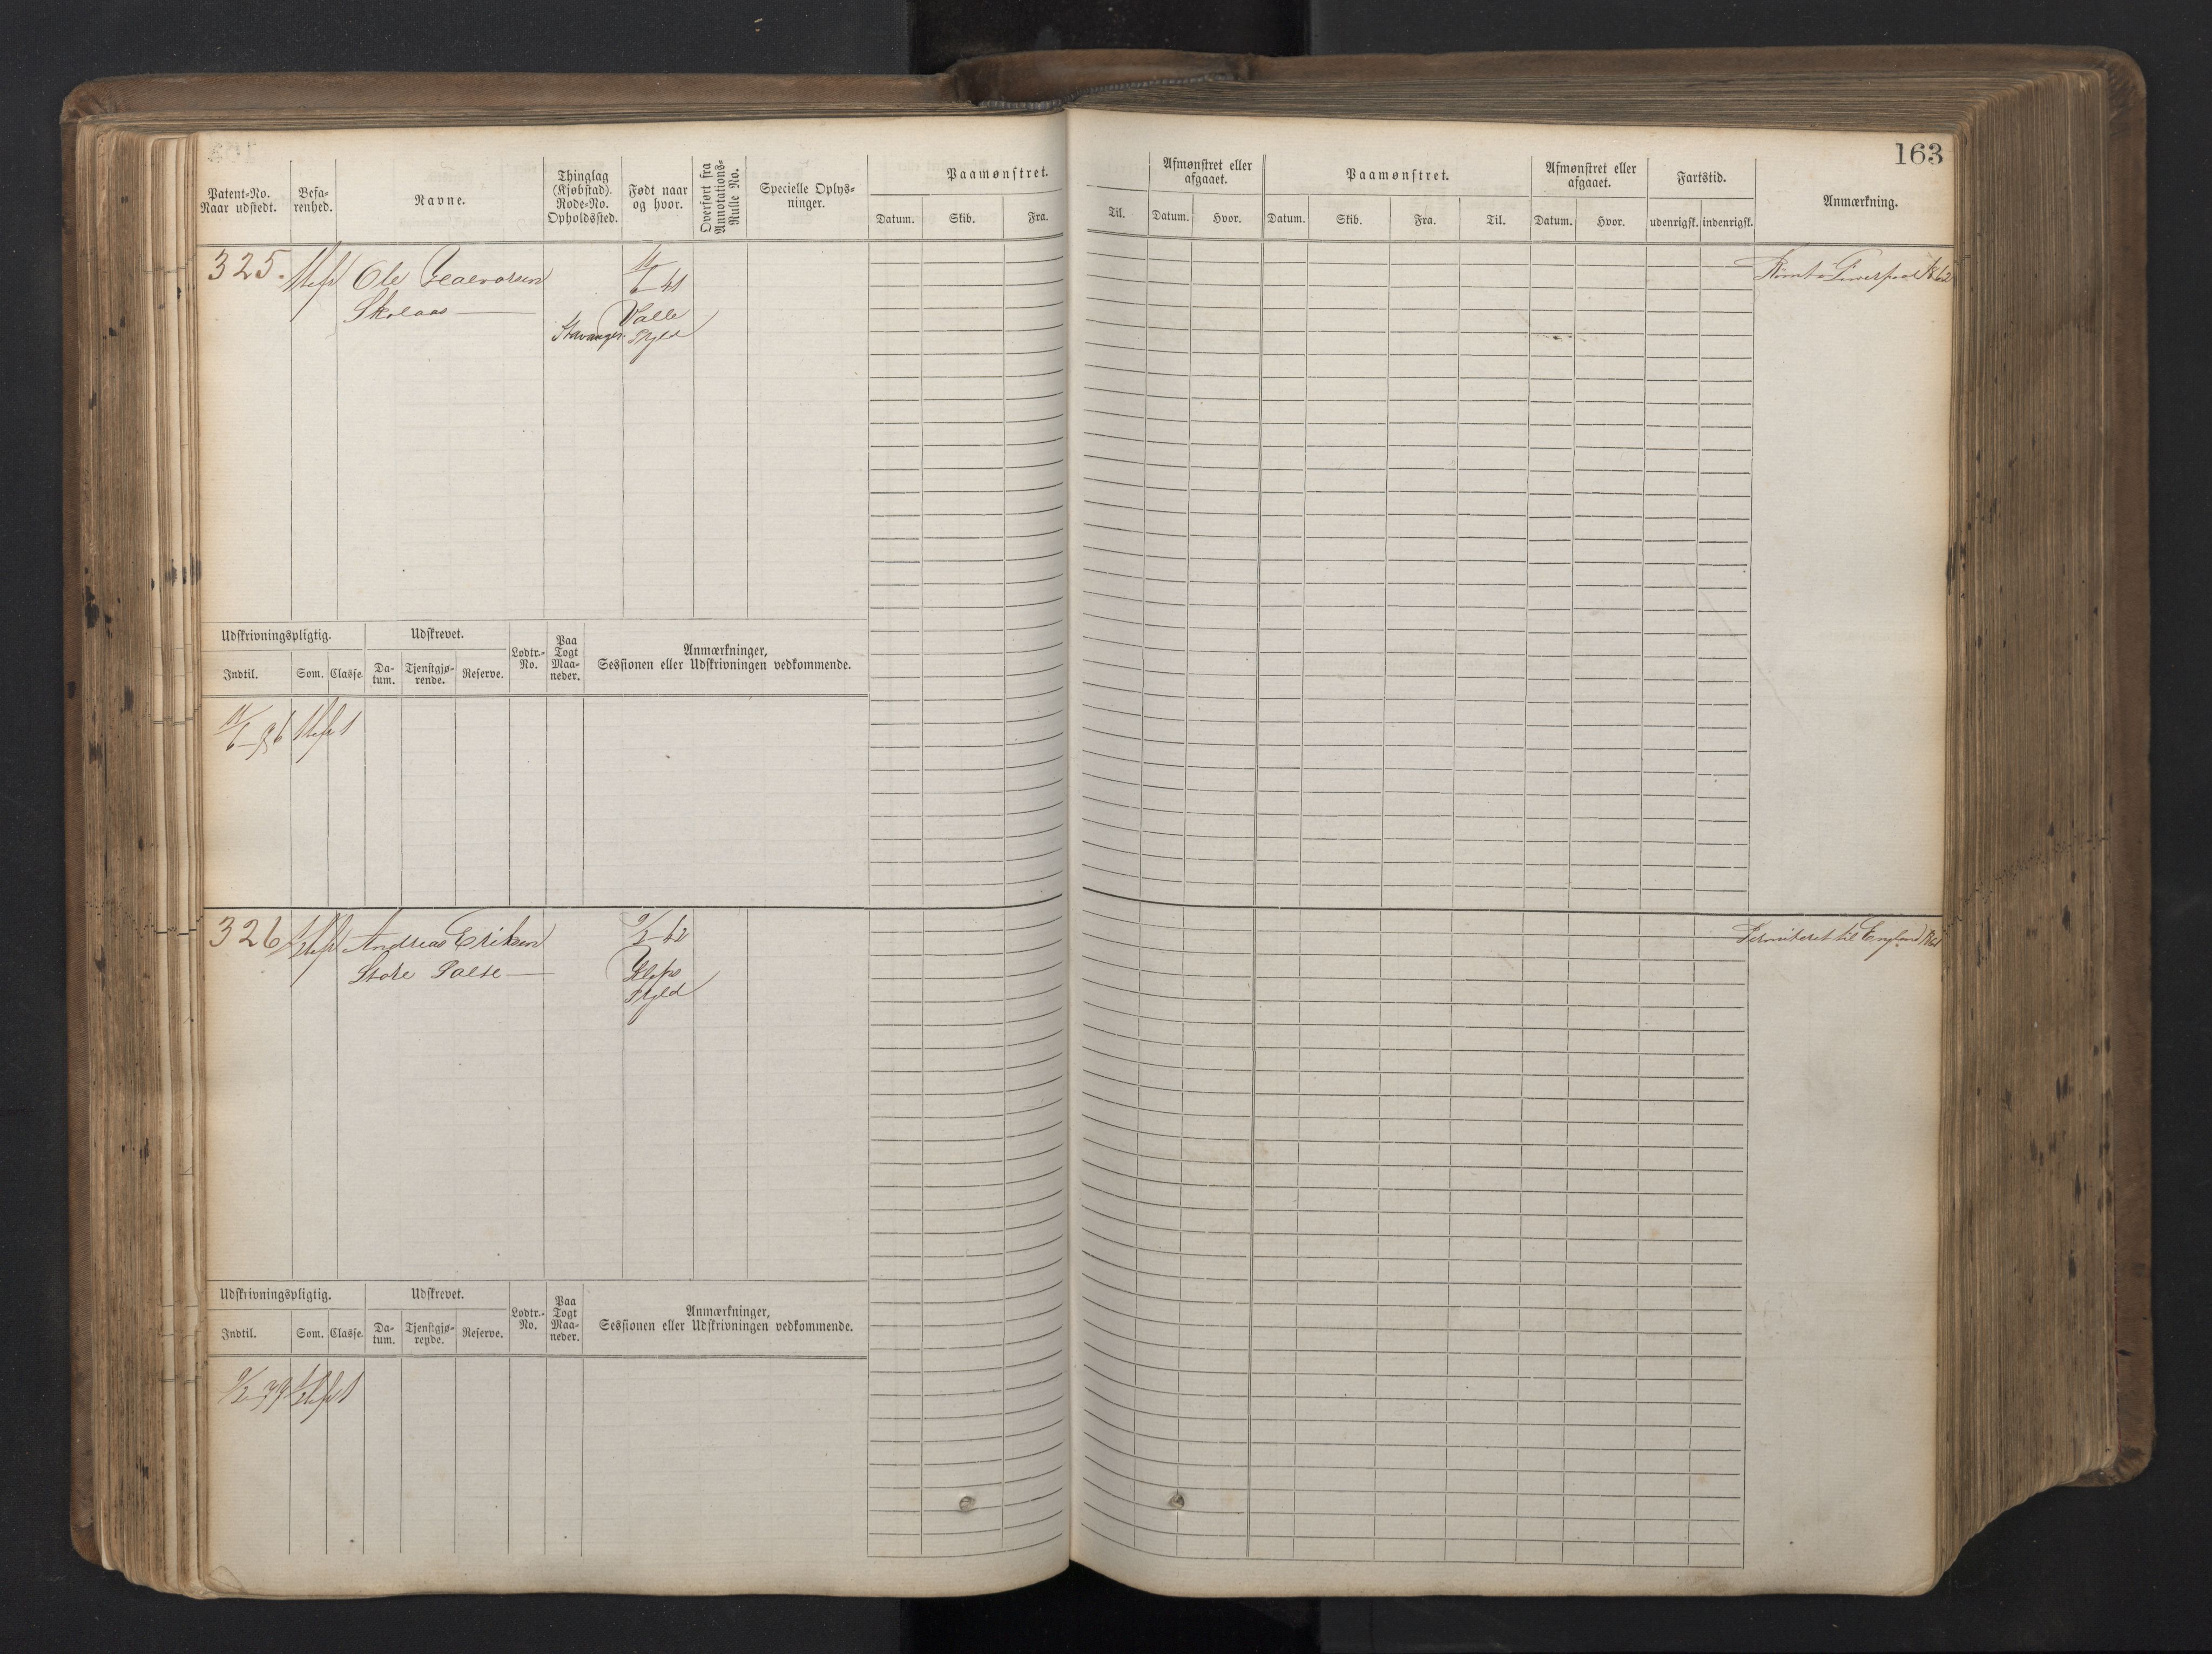 163
Patent=No.
Naar udstedt.
Befa=
renhed.
Navne.
Thinglag
(Kjøbstad).
Rode=No.
Opholdssted.
Født naar
og hvor.
Overført fra
Annotations=
Rulle No.
Specielle Oplys=
ninger.
Paamønstret.
Datum.
Skib.
Fra.
Til.
Afmønstret eller
afgaaet.
Datum.
Hvor.
Paamønstret.
Datum.
Skib.
Fra.
Til.
Afmønstret eller
afgaaet.
Datum.
Hvor.
Fartstid.
udenrigsk.
indenrigsk.
Anmærkning.
325.
Ole
Skolaas
Stavanger
Valle
Udskrivningspligtig.
Indtil.
Som.
Classe.
Udskrevet.
Da=
tum.
Tjenstgjø=
rende.
Reserve.
Lodtr.=
No.
Paa
Togt
Maa=
neder.
Anmærkninger,
Sessionen eller Udskrivningen vedkommende.
326
Andreas Eriksen
Store
til England
Udskrivningspligtig.
Indtil.
Som.
Classe.
Udskrevet.
Da=
tum.
Tjenstgjø=
rende.
Reserve.
Lodtr.=
No.
Paa
Togt
Maa=
neder.
Anmærkninger,
Sessionen eller Udskrivningen vedkommende.